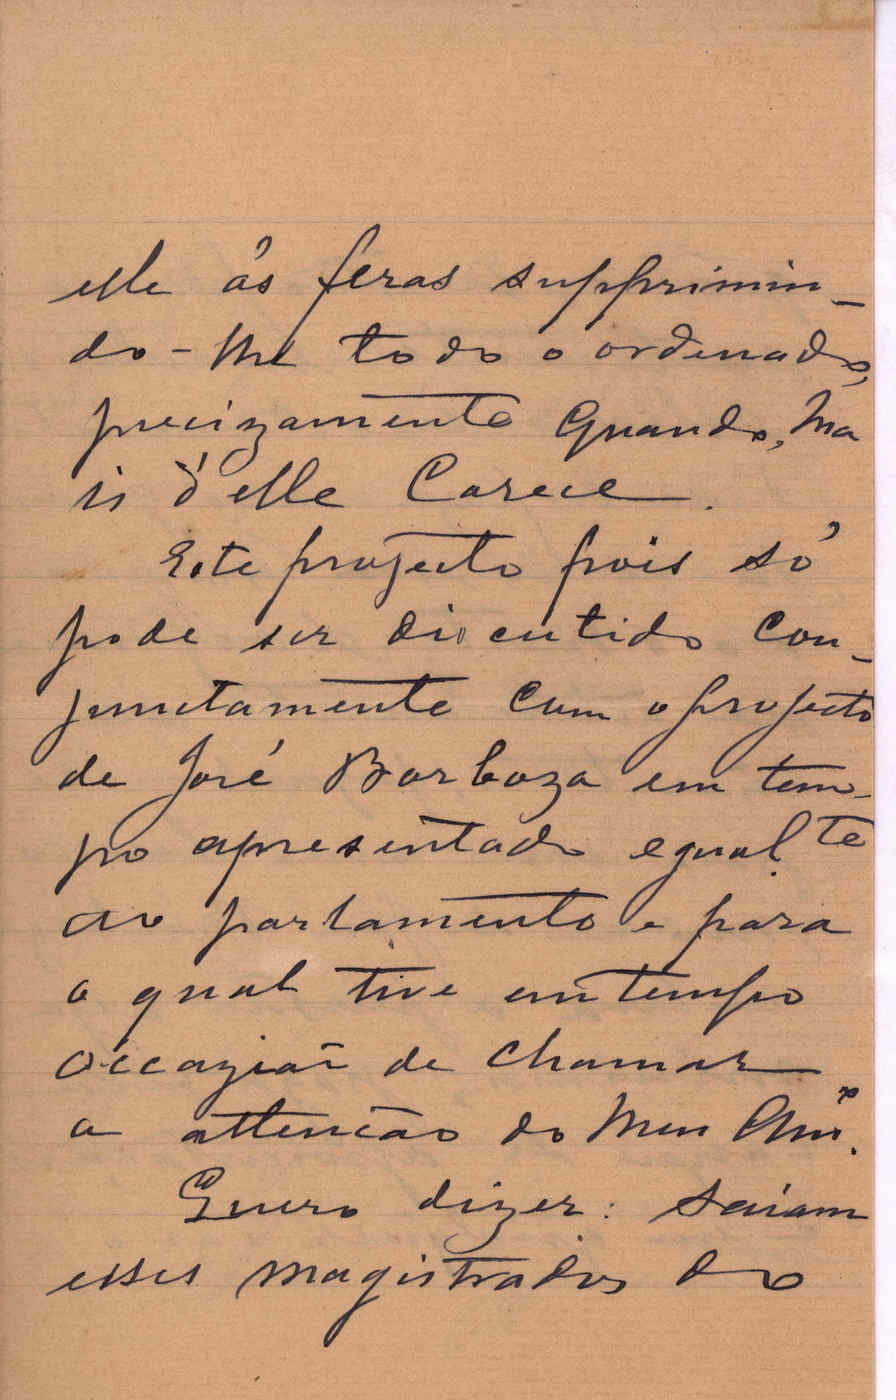 elle ás feras supprimin-
do-lhe todo o ordenado,
precizamente quando, ma
is d'elle Carece.
Este projecto pois só
pode ser discutido con-
junctamente com o projecto
de José Barboza em tem-
po apresentado egual.te
ao parlamento e para
o qual tive em tempo
occazião de chamar
a attenção do Meu Am.º
Quero dizer: saiam
esses magistrados do